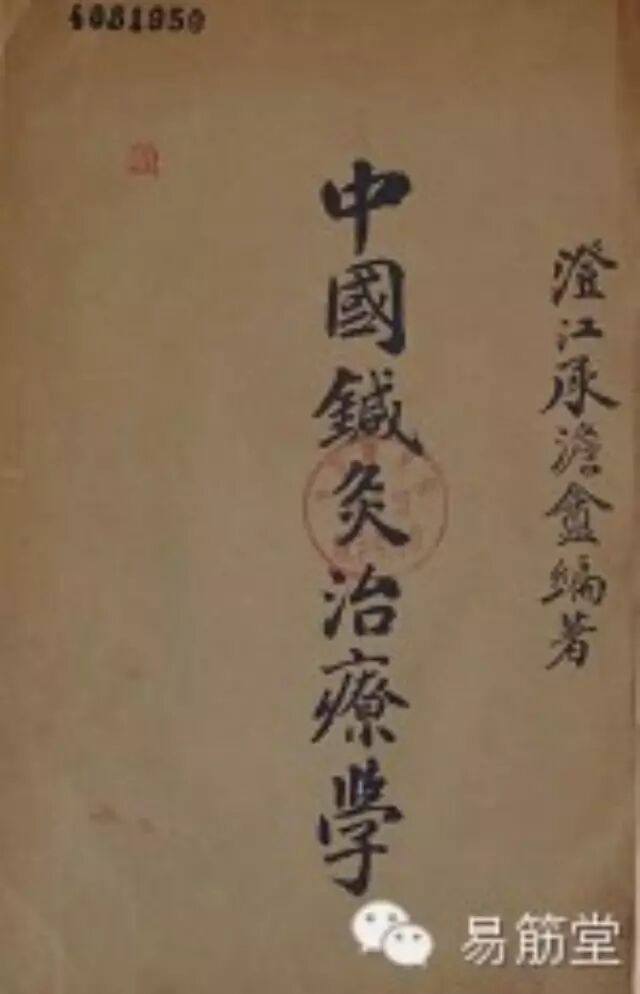 4081950
澄江承澹盦編著
中國鍼灸治療學
易筋堂